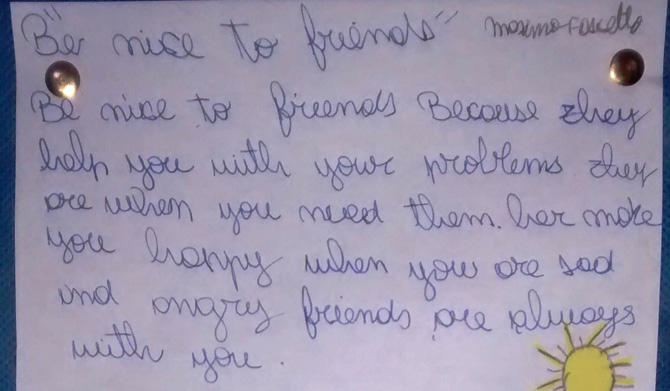 "Be nice to friends" massimo foscetto
Be nice to friends Because they
help you with your problems they
are when you need them. her make
you happy when you are sad
and angry friends are always
with you.